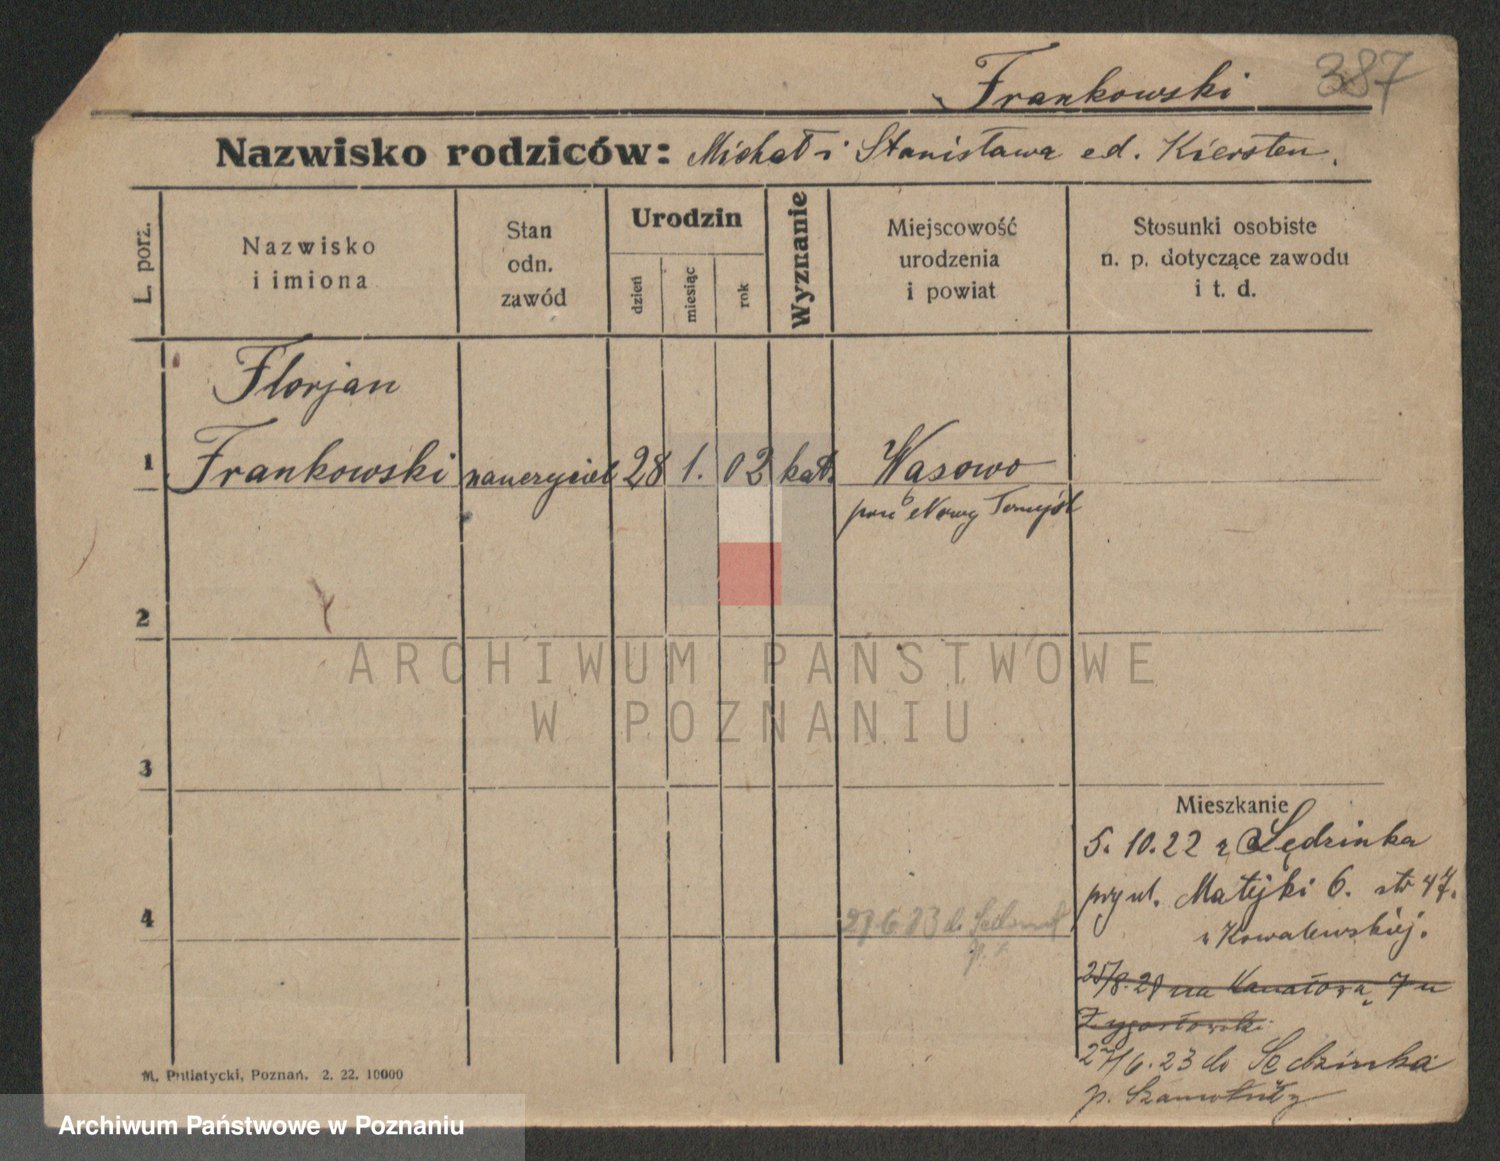 Frankowski 387
Nazwisko rodziców: Michał i Stanisława ed. Kiersten.
L. porz.
Nazwisko
i imiona
Stan
odn.
zawód
Urodzin
dzień
miesiąc
rok
Wyznanie
Miejscowość
urodzenia
i powiat
Stosunki osobiste
n. p. dotyczące zawodu
i t. d.
Florjan
1 Frankowski nauczyciel 28 1. 02 kat. Wąsowo
pow Nowy Tomyśl
2
ARCHIWUM PAŃSTWOWE
W POZNANIU
3
Mieszkanie
5. 10. 22 z Sędzinka
przy ul. Matejki 6. str 47.
u Kowalewskiej.
4
27.6.23 do
25/8.21 na Kanałowa 7 u
Zygostowski
27/6.23 do Sędzinka
p. Szamotuły
M. Putiatycki, Poznań. 2. 22. 10000
Archiwum Państwowe w Poznaniu